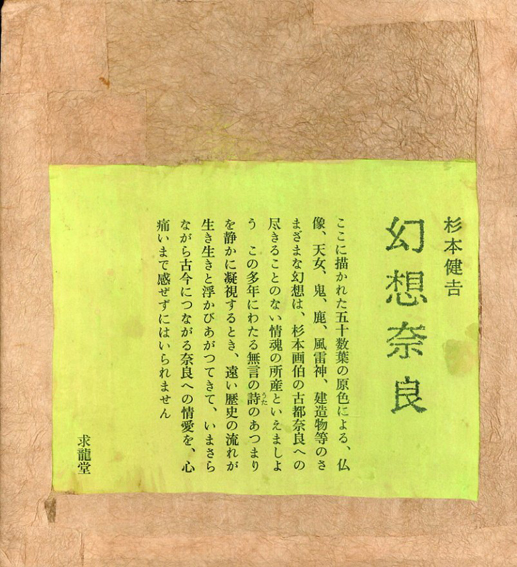 杉本健吉
幻想奈良
ここに描かれた五十数葉の原色による、仏
像、天女、鬼、鹿、風雷神、建造物等のさ
まざまな幻想は、杉本画伯の古都奈良への
尽きることのない情魂の所産といえましよ
う　この多年にわたる無言の詩のあつまり
うた
を静かに凝視するとき、遠い歴史の流れが
生き生きと浮かびあがつてきて、いまさら
ながら古今につながる奈良への情愛を、心
痛いまで感ぜずにはいられません
求龍堂